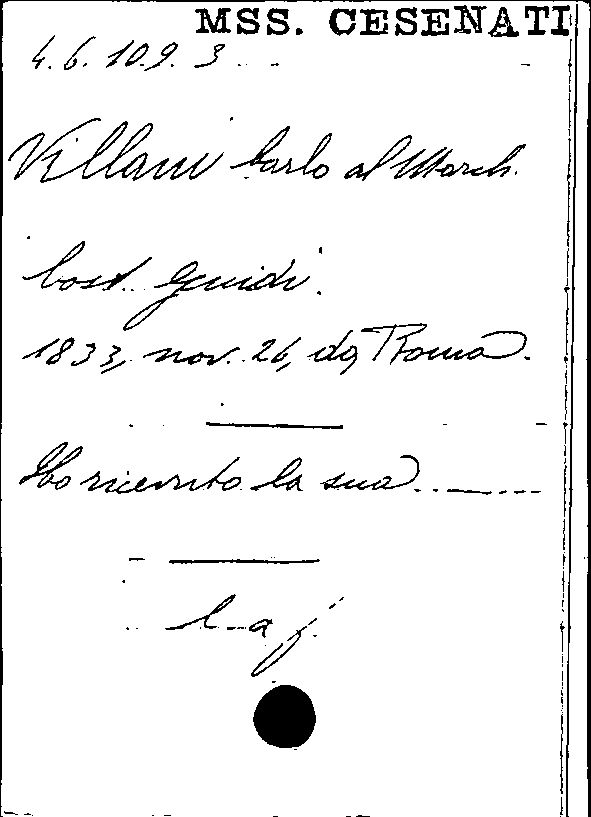 MSS. CESENATI
4.6.10.9.3
Villani Carlo al March.
Cost. Guidi.
1833, nov. 26, da Roma.
Ho ricevuto la sua ........
l. a f.